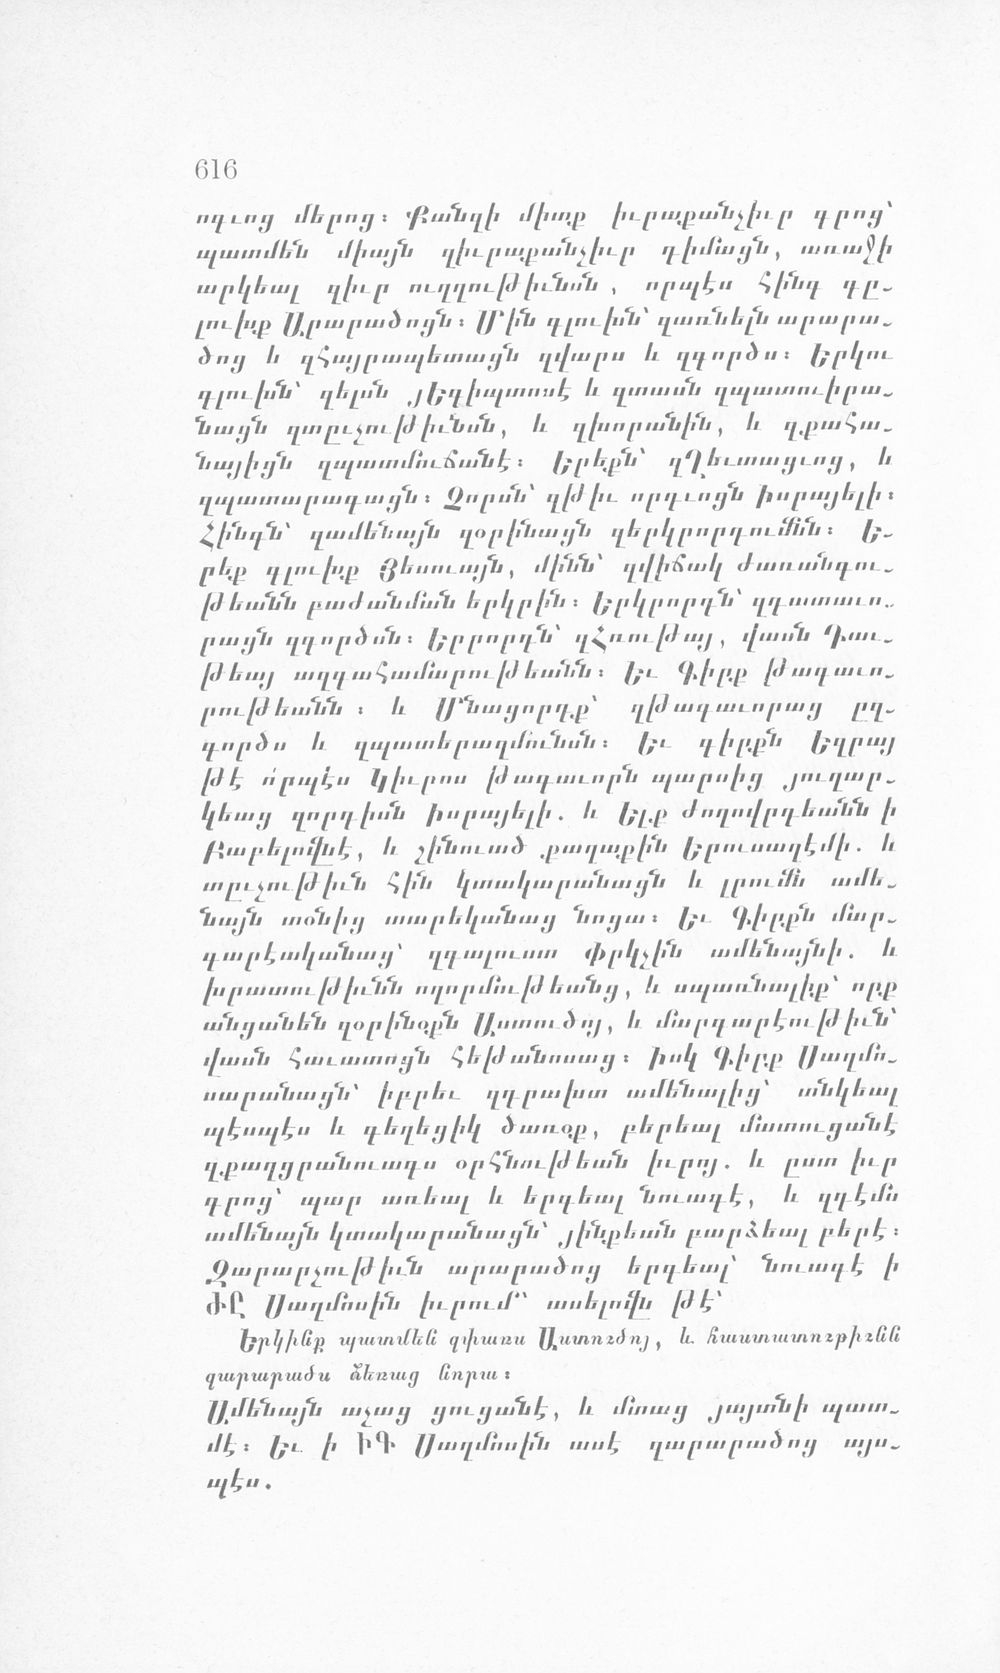 616
ոգւոց մերոց։ Քանզի միտք իւրաքանչիւր գրոց՝
պատմեն միայն զիւրաքանչիւր դիմացն, առաջի
արկեալ զիւր ուղղութիւնսն, որպէս Հինգ գը֊
լուխք Արարածոցն։ Մին գլուխն՝ զառնելն արարա֊
ծոց և զՀայրապետացն զվարս և զգործս։ Երկու
գլուխն՝ զելսն յԵգիպտոսէ և զտասն զպատուիրա֊
նացն զտըւչութիւնսն, և զխորանին, և զքահա֊
նայիցն զպատմուճանէ։ Երեքն՝ զՂեւտացւոց, և
զպատարագացն։ Չորսն՝ զթիւ որդւոցն Իսրայելի։
Հինգն՝ զամենայն զօրինացն զերկրորդումնն։ Ե֊
րեք գլուխք Յեսուայն, մինն՝ զվիճակ ժառանգու֊
թեանն բաժանման երկրին։ Երկրորդն՝ զդատաւո֊
րացն զգործսն։ Երրորդն՝ զՀռութայ, վասն Դաւ֊
թեայ ազգահամարութեանն։ Եւ Գիրք թագաւո֊
րութեանն։ և Մնացորդք՝ զթագաւորաց ըզ֊
գործս և զպատերազմունսն։ Եւ գիրքն Եզրայ
թէ ո՛րպէս Կիւրոս թագաւորն պարսից յուղար֊
կեաց զորդիսն Իսրայելի. և Ելք ժողովրդեանն ի
Բաբելովնէ, և շինուած քաղաքին Երուսաղէմի. և
տըւչութիւն Հին կտակարանացն և լրումն ամե֊
նայն տօնից տարեկանաց նոցա։ Եւ Գիրքն մար֊
գարէականաց՝ զգալուստ Փրկչին ամենայնի. և
խրատութիւնն ողորմութեանց, և սպառնալիք՝ որք
անցանեն զօրինօքն Աստուծոյ, և մարգարէութիւն՝
վասն Հաւատոցն Հեթանոսաց։ Իսկ Գիրք Սաղմո֊
սարանացն՝ իբրեւ զդրախտ ամենալից՝ տնկեալ
պէսպէս և գեղեցիկ ծառօք, բերեալ մատուցանէ
զքաղցրանուագս օրՀնութեան իւրոյ. և ըստ իւր
գրոց՝ պար առեալ և երգեալ նուագէ, և զդէմս
ամենայն կտակարանացն՝ յինքեան բարձեալ բերէ։
Զարարչութիւն արարածոց երգեալ՝ նուագէ ի
ԺԸ Սաղմոսին իւրում՝ ասելովն թէ՝
Երկինք պատմեն զփառս Աստուծոյ, և հաստատութիւնն
զարարածս ձեռաց նորա։
Ամենայն աչաց ցուցանէ, և մտաց յայտնի պատ֊
մէ։ Եւ ի ԻԳ Սաղմոսին ասէ զարարածոց այս֊
պէս.